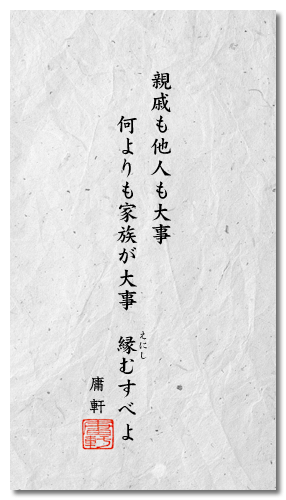 親戚も他人も大事
何よりも家族が大事　縁むすべよ
えにし
庸軒